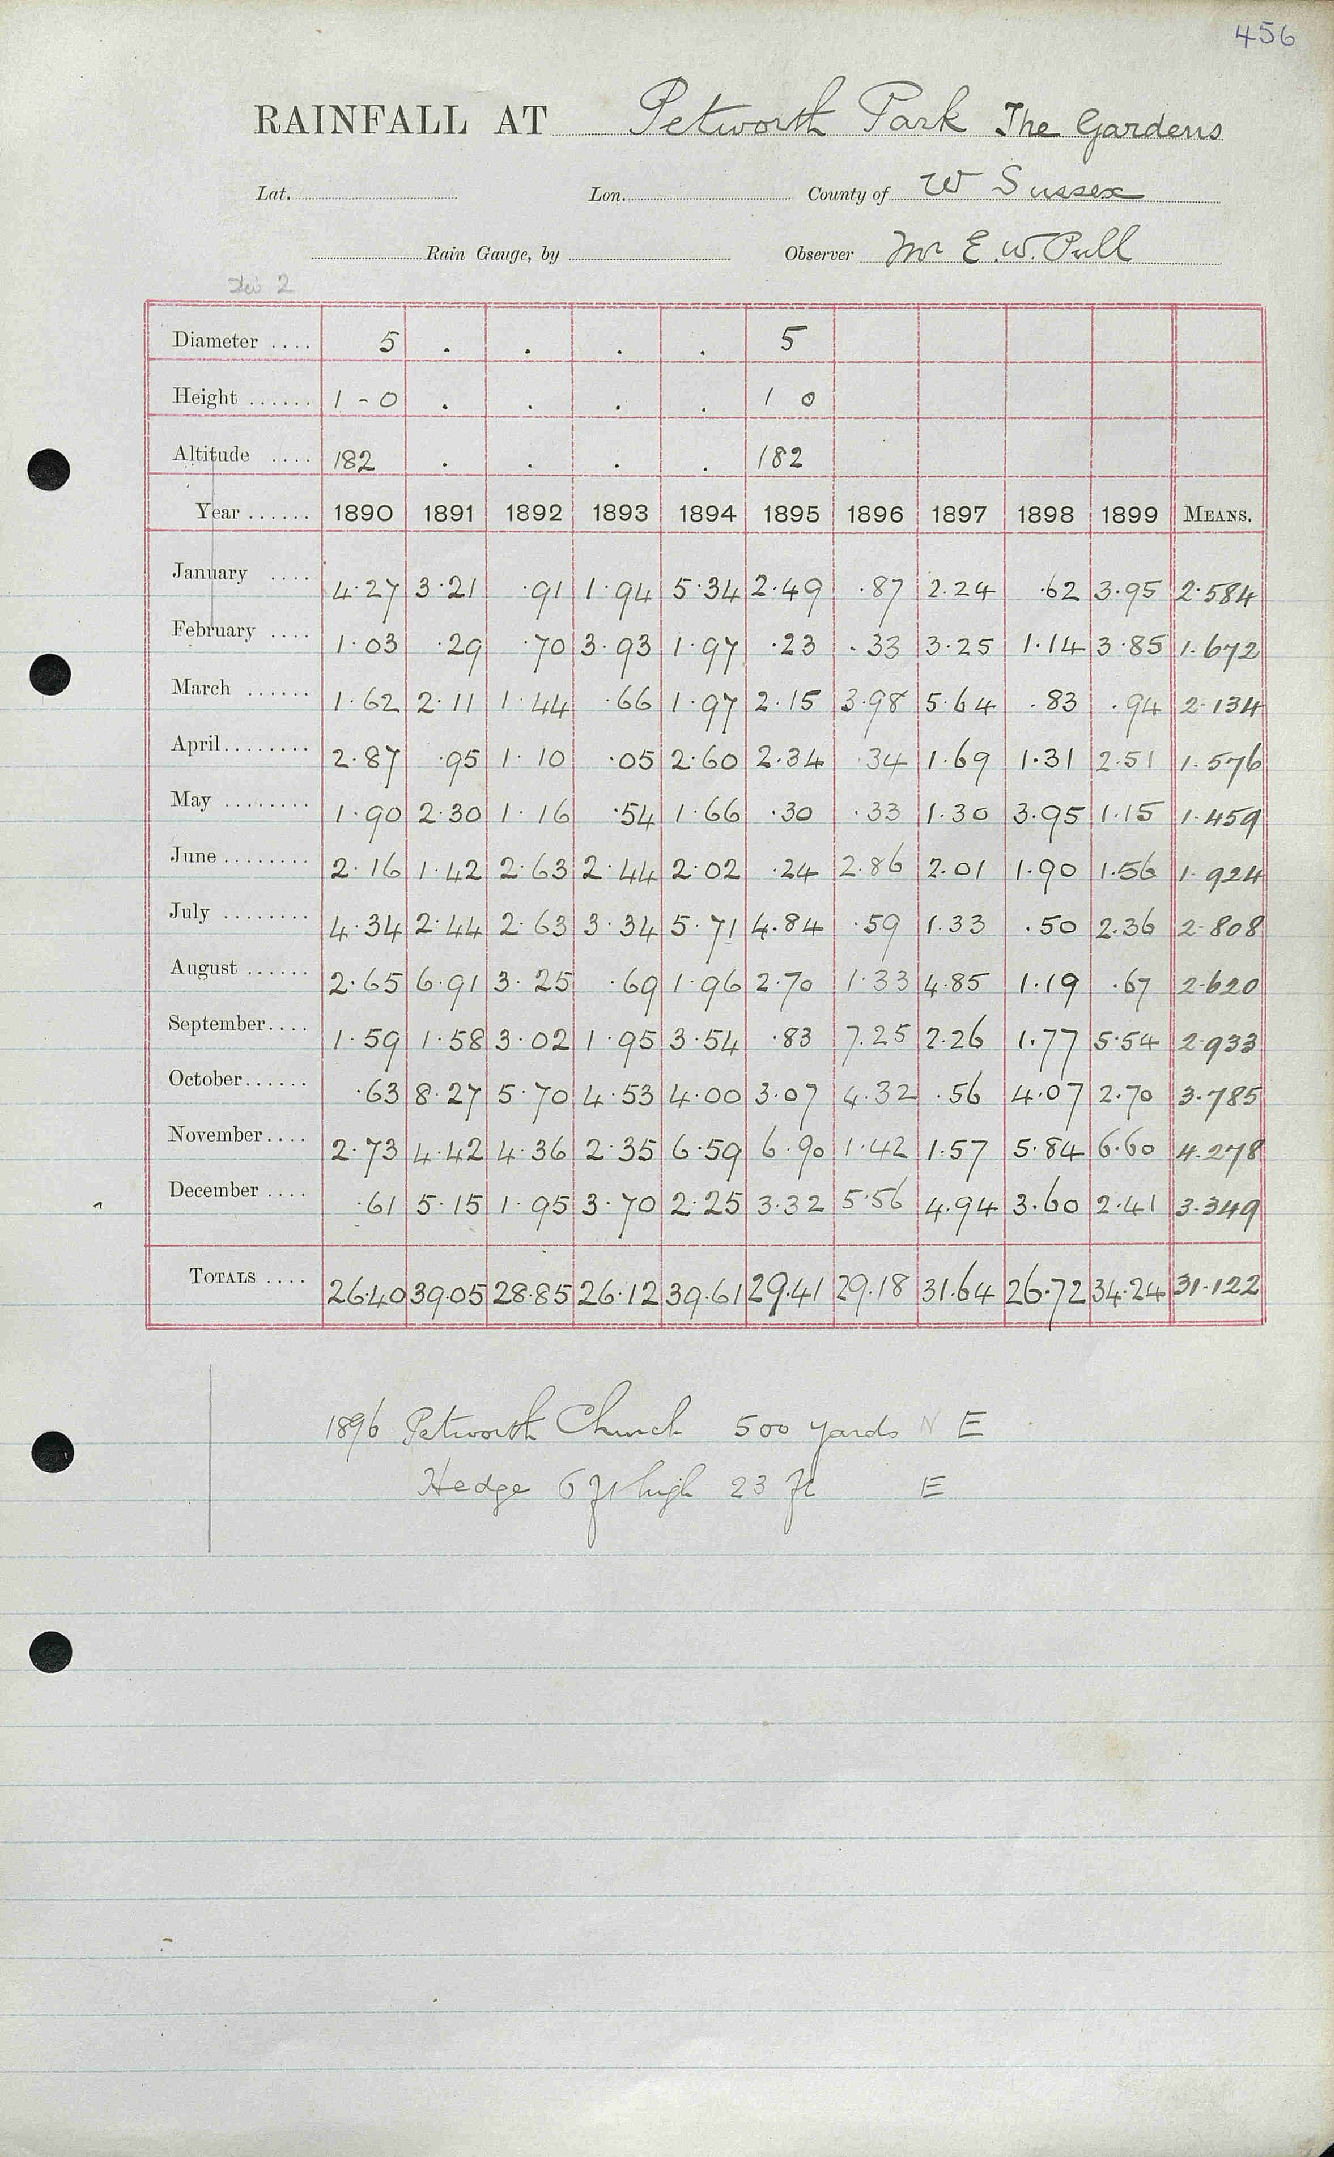 456
RAINFALL AT Petworth Park The Gardens
Lat. Lon. County of W Sussex
Rain Gauge, by Observer Mr E. W. Pull
Div 2
Diameter .... 5 . . . . 5
Height ...... 1 - 0 . . . . 1 0
Altitude .... 182 . . . . 182
Year ...... 1890 1891 1892 1893 1894 1895 1896 1897 1898 1899 MEANS.
January .... 4.27 3.21 .91 1.94 5.34 2.49 .87 2.24 .62 3.95 2.584
February .... 1.03 .29 .70 3.93 1.97 .23 .33 3.25 1.14 3.85 1.672
March ...... 1.62 2.11 1.44 .66 1.97 2.15 3.98 5.64 .83 .94 2.134
April........ 2.87 .95 1.10 .05 2.60 2.34 .34 1.69 1.31 2.51 1.576
May ........ 1.90 2.30 1.16 .54 1.66 .30 .33 1.30 3.95 1.15 1.459
June ........ 2.16 1.42 2.63 2.44 2.02 .24 2.86 2.01 1.90 1.56 1.924
July ........ 4.34 2.44 2.63 3.34 5.71 4.84 .59 1.33 .50 2.36 2.808
August ...... 2.65 6.91 3.25 .69 1.96 2.70 1.33 4.85 1.19 .67 2.620
September.... 1.59 1.58 3.02 1.95 3.54 .83 7.25 2.26 1.77 5.54 2.933
October...... .63 8.27 5.70 4.53 4.00 3.07 4.32 .56 4.07 2.70 3.785
November.... 2.73 4.42 4.36 2.35 6.59 6.90 1.42 1.57 5.84 6.60 4.278
December .... .61 5.15 1.95 3.70 2.25 3.32 5.56 4.94 3.60 2.41 3.349
TOTALS .... 26.40 39.05 28.85 26.12 39.61 29.41 29.18 31.64 26.72 34.24 31.122
1896 Petworth Church 500 yards N E
Hedge 6 ft high 23 ft E